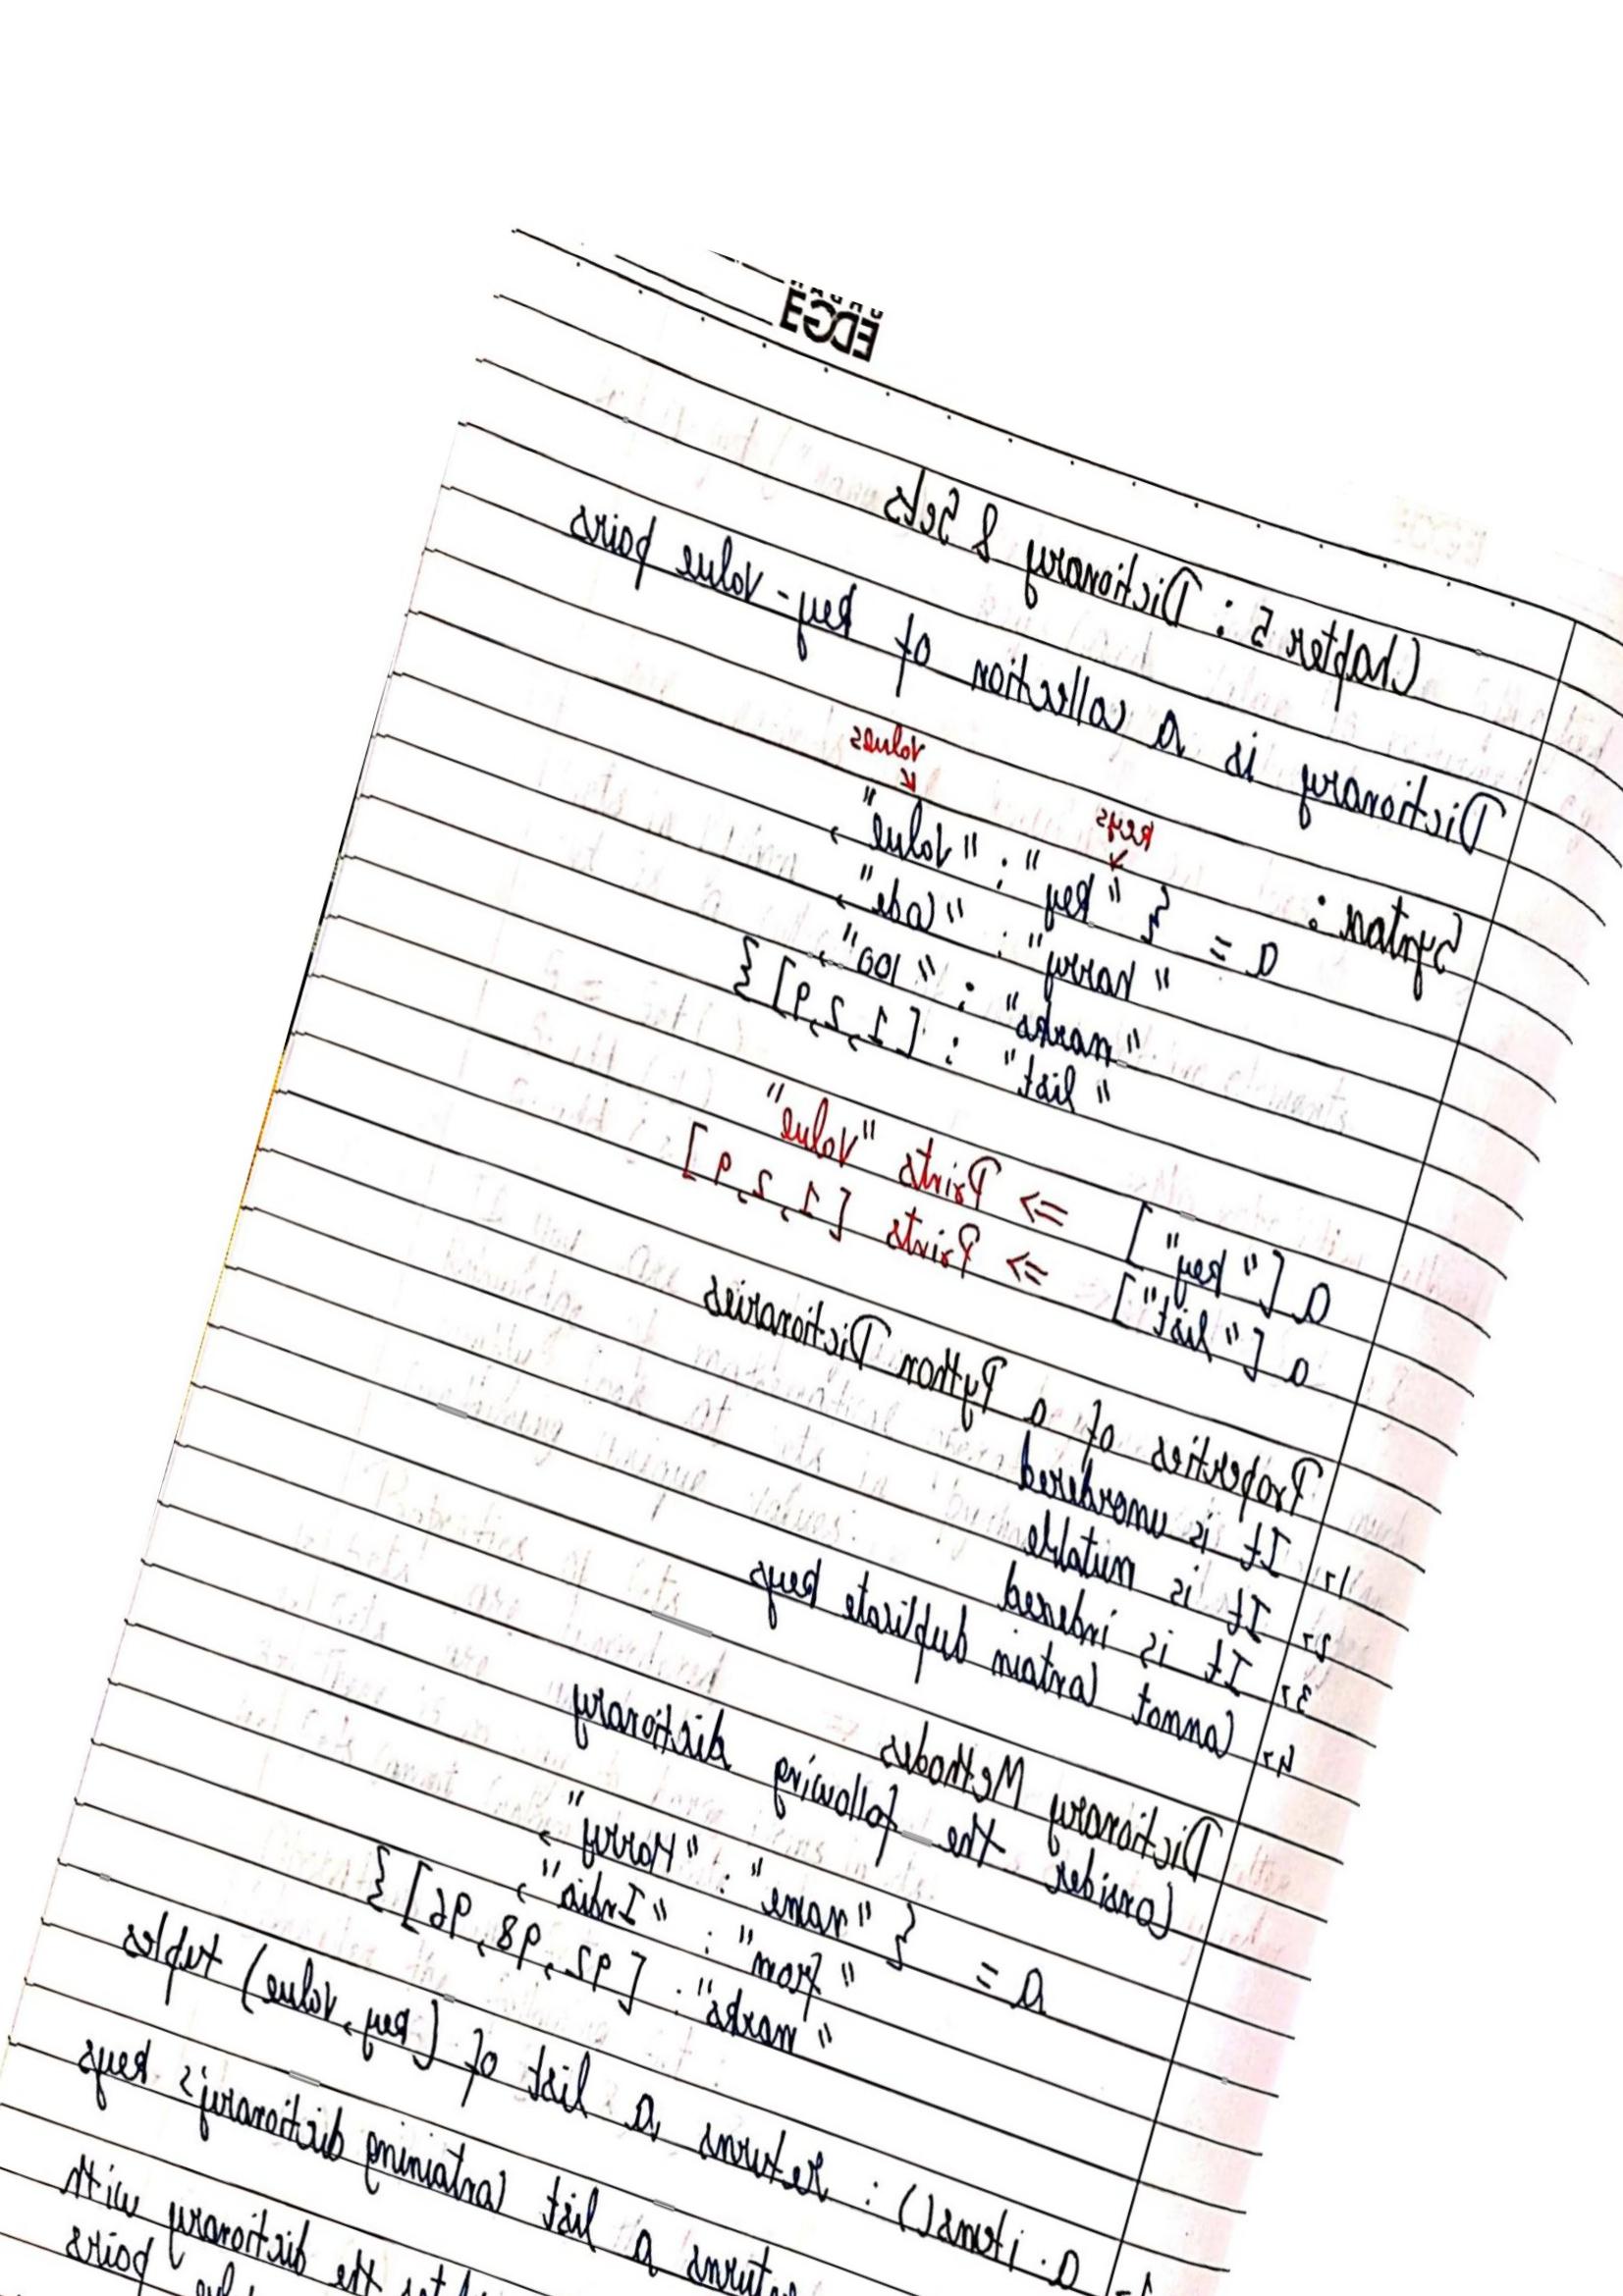 URBAN
EDGE
Chapter 5 : Dictionary & Sets
Dictionary is a collection of key-value pairs
values
keys
Syntax :
a = { "key" : "value",
"harry" : "Code",
"marks" : "100",
"list" : [1, 2, 9] }
a ["key"] => Prints "value"
a ["list"] => Prints [1, 2, 9]
Properties of a Python Dictionaries
1, It is unordered
2, It is mutable
3, It is indexed
4, Cannot Contain duplicate keys
Dictionary Methodes
Consider the following dictionary
a = { "name" : "Harry",
"from" : "India",
"marks" : [92, 98, 96] }
a.items() : returns a list of (key, value) tuples
a list Containing dictionary's keys
the dictionary with
pairs